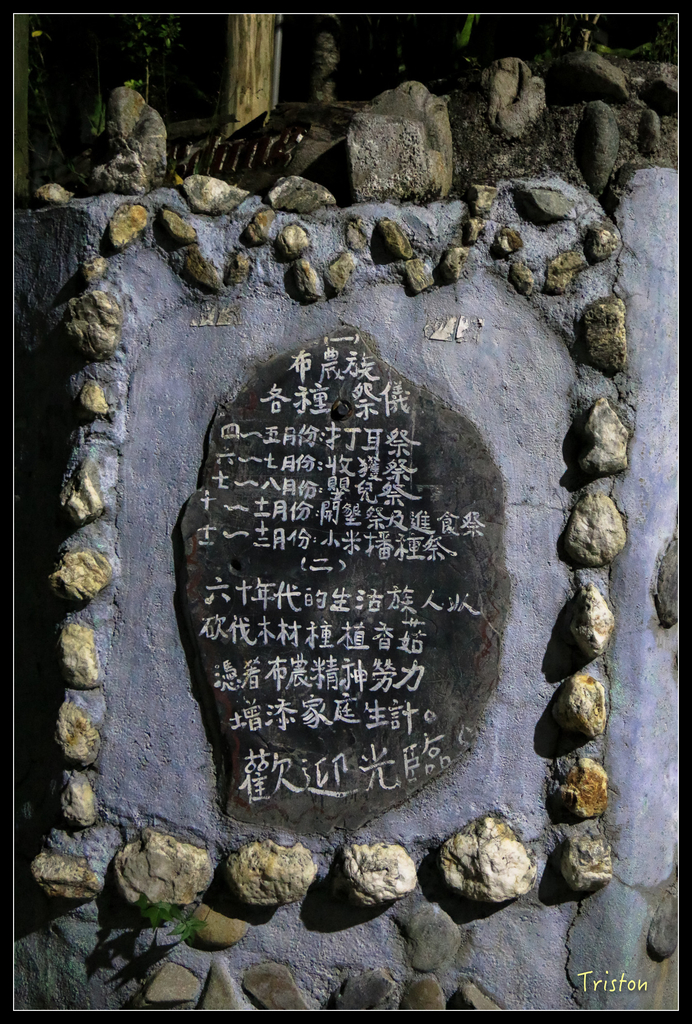 (一)
布農族
各種祭儀
四～五月份:打耳祭
六～七月份:收獲祭
七～八月份:嬰兒祭
十～十一月份:開墾祭及進食祭
十一～十二月份:小米播種祭
(二)
六十年代的生活族人以
砍伐木材種植香菇
憑著布農精神勞力
增添家庭生計。
歡迎光臨
Triston